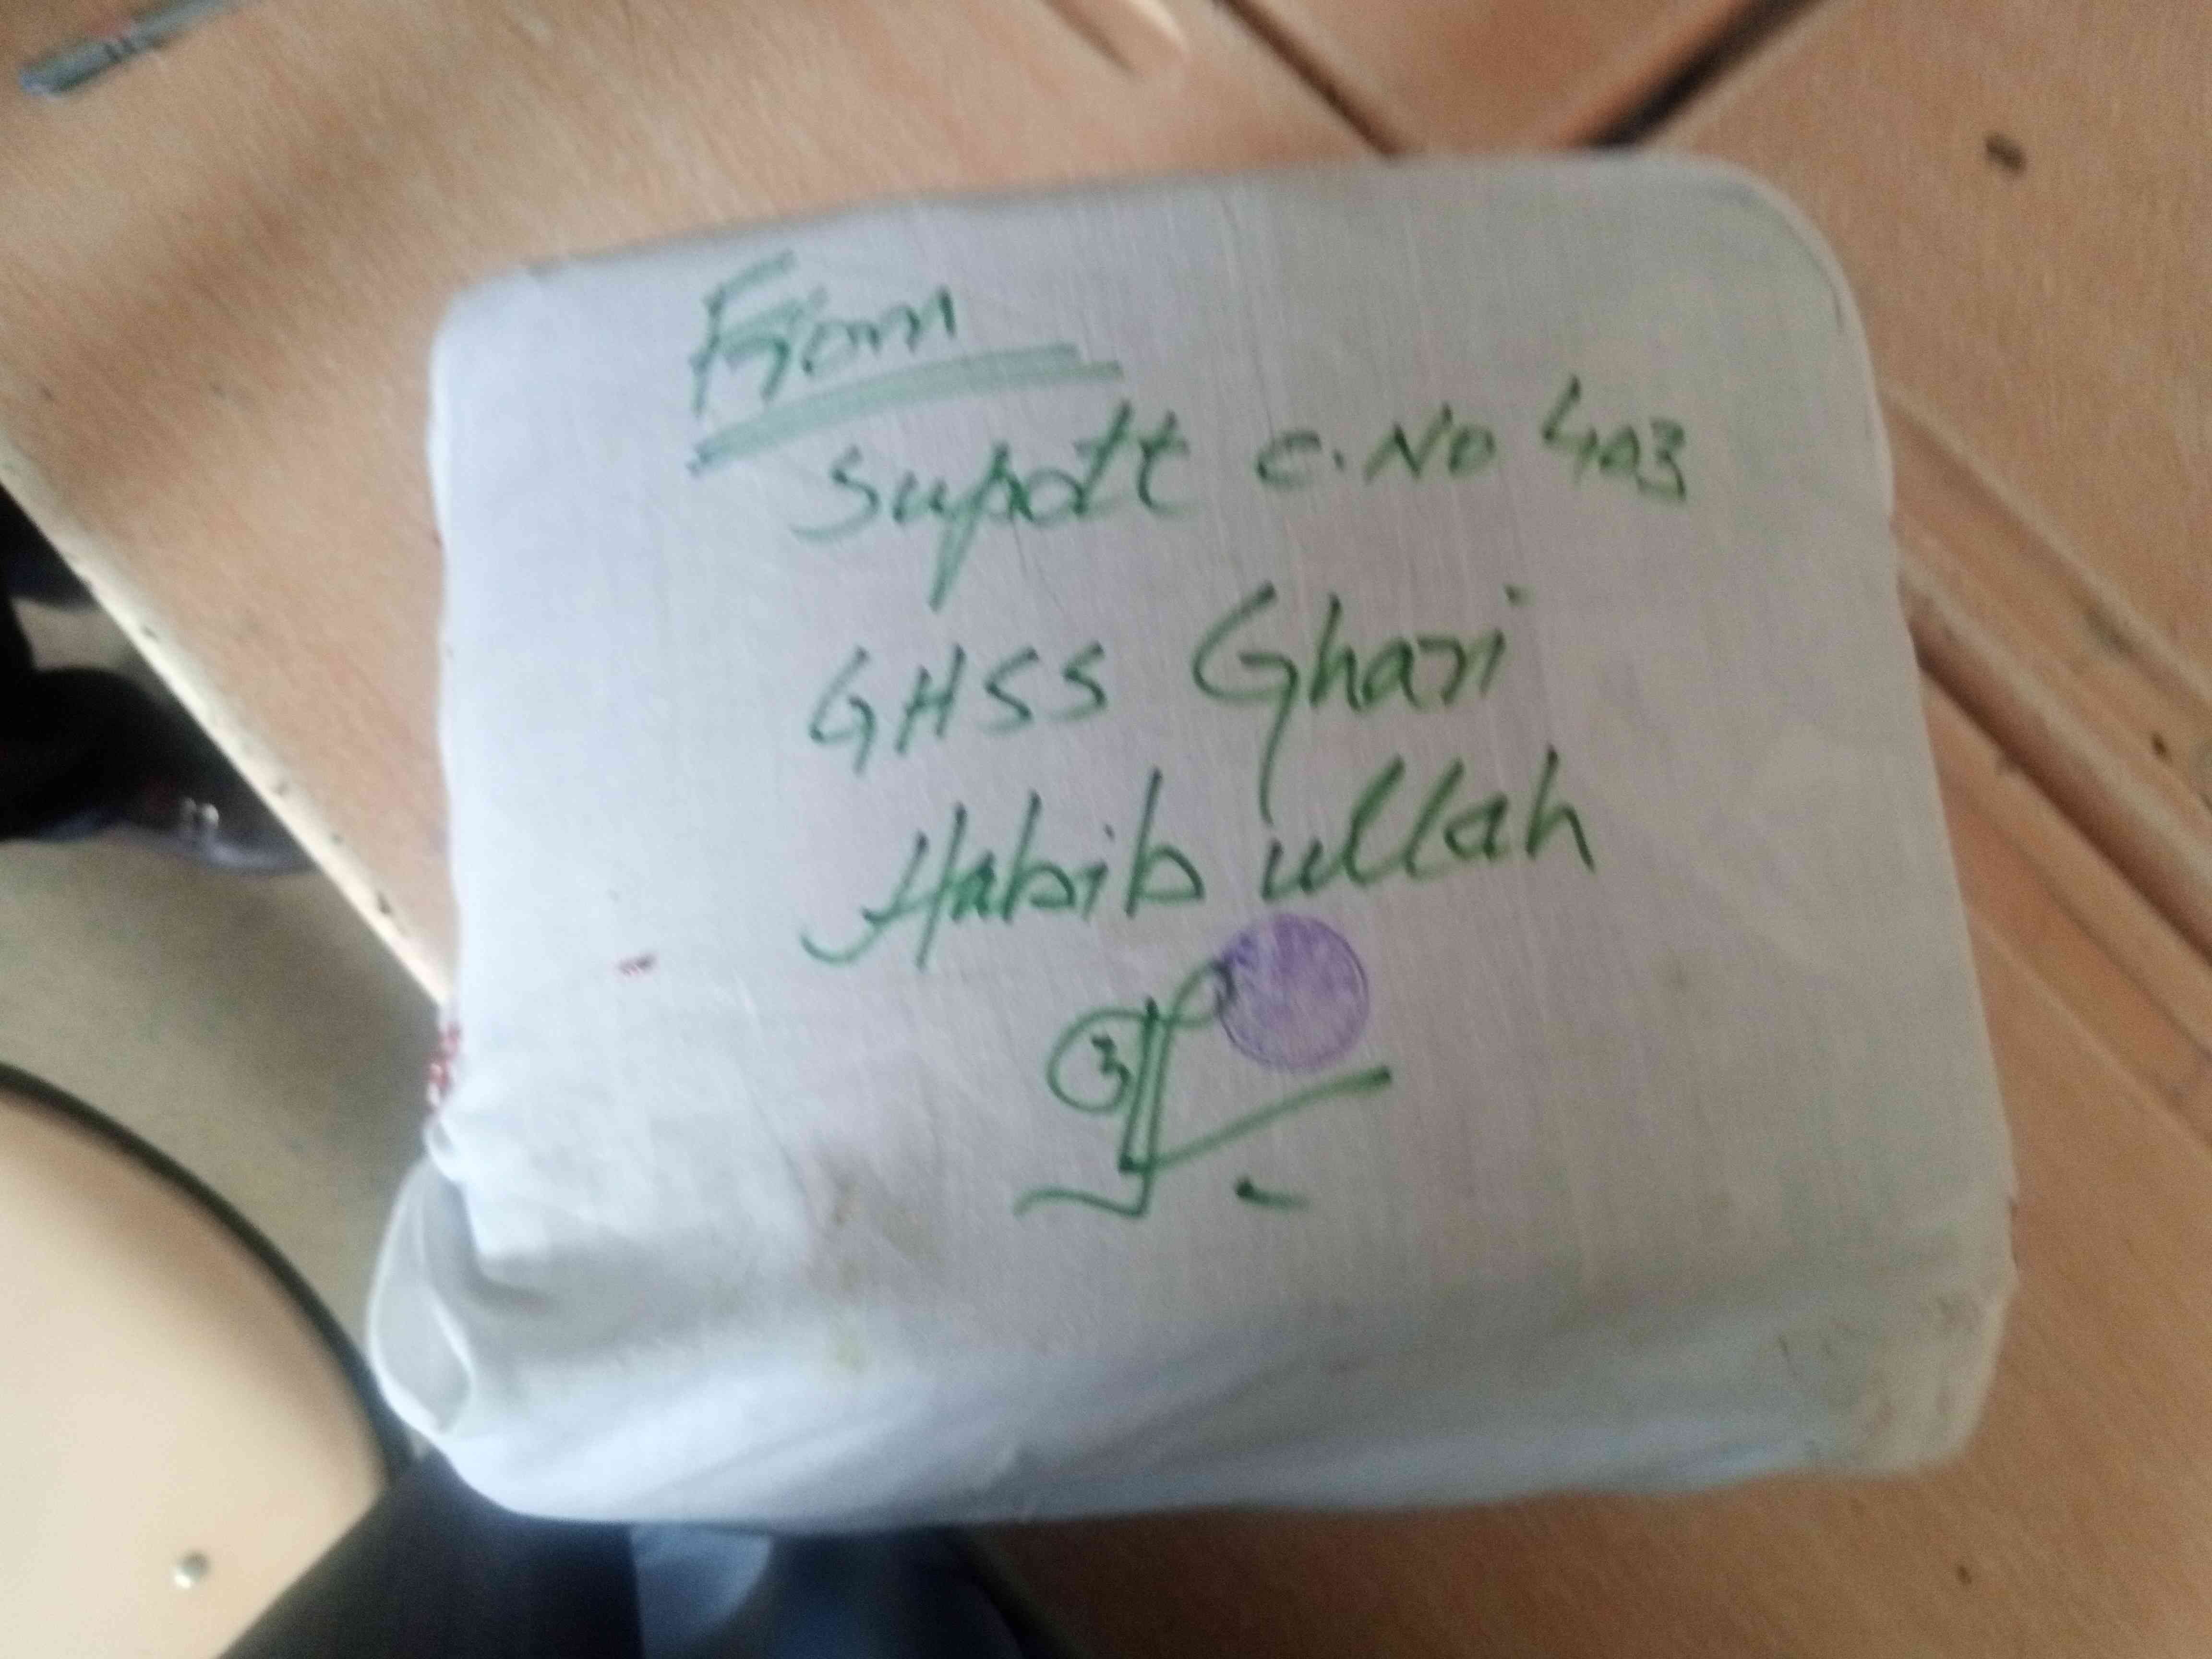 From
Supdtt C.No 403
GHSS Ghari
Habib ullah